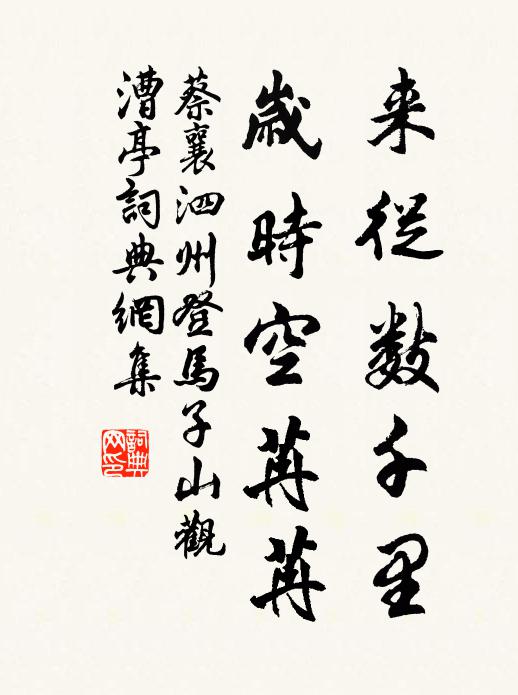 来從数千里
歲時空苒苒
蔡襄泗州登馬子山觀
漕亭詞典網集
詞典网印